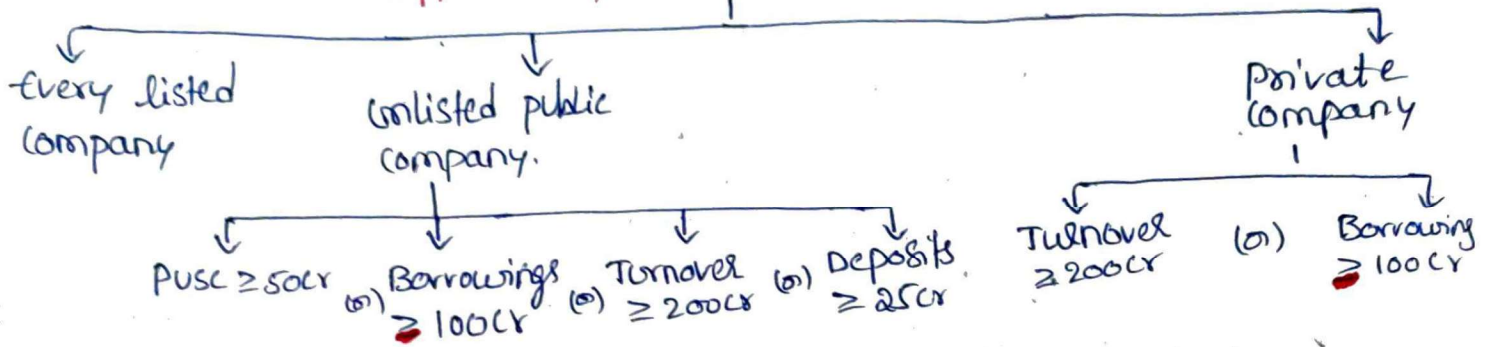 Every listed
company
Unlisted public
company.
private
company
PUSC ≥ 50cr (or) Borrowings
≥ 100cr (or) Turnover
≥ 200cr (or) Deposits
≥ 25cr
Turnover
≥ 200cr (or) Borrowing
≥ 100cr